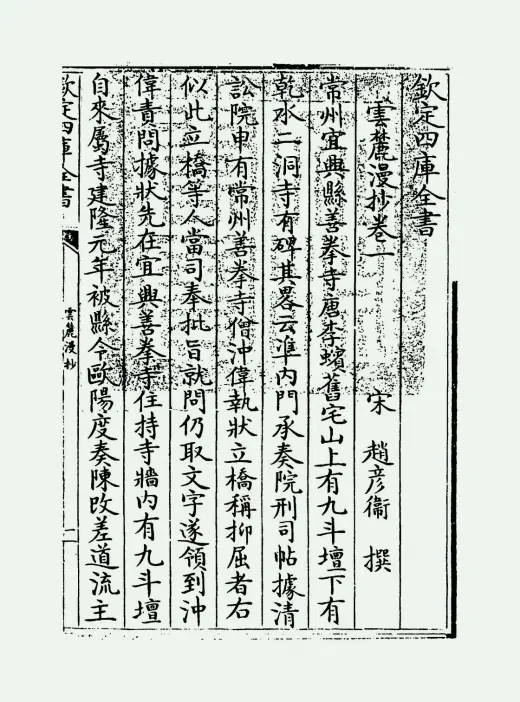 欽定四庫全書
雲麓漫抄卷一
宋 趙彦衞 撰
常州宜興縣善拳寺唐李蠙舊宅山上有九斗壇下有
乾水二洞寺有碑其畧云準内門承奏院刑司帖據清
訟院申有常州善拳寺僧沖偉執狀立橋稱抑屈者右
似此立橋等人當司奉批旨就問仍取文字遂領到沖
偉責問據狀先在宜興善拳寺住持寺牆内有九斗壇
自來屬寺建隆元年被縣令歐陽度奏陳改差道流主
欽定四庫全書
雲麓漫抄
一